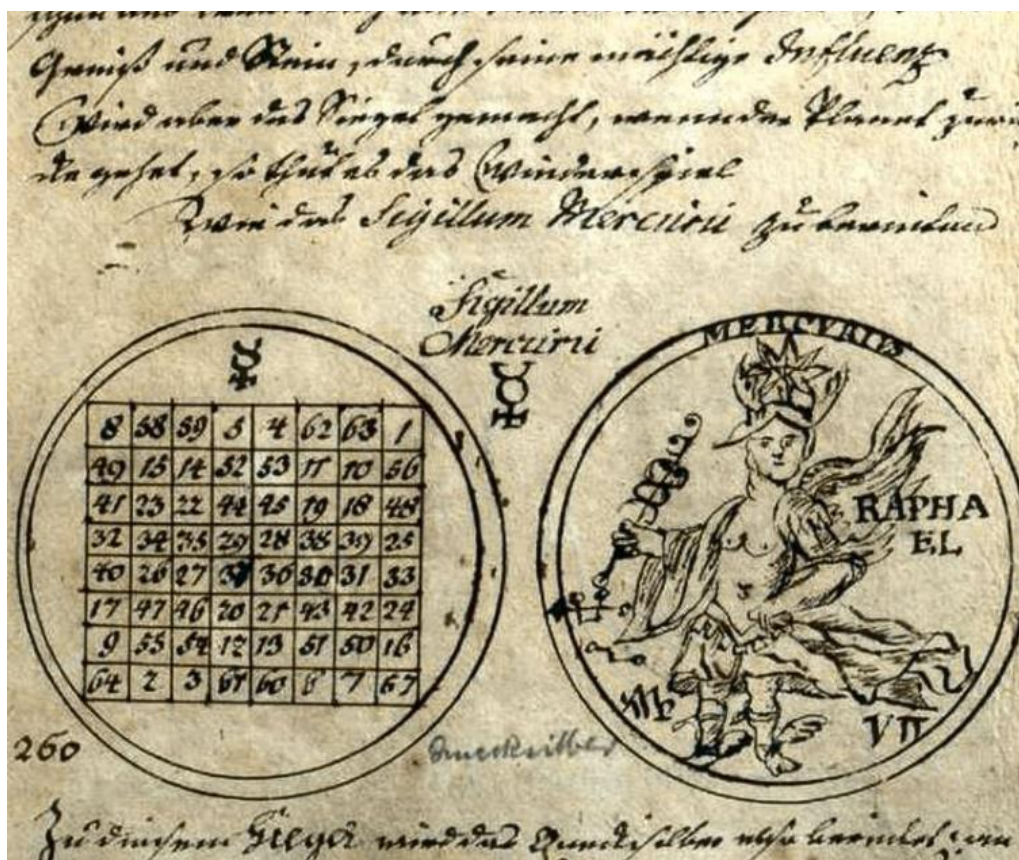 und
und Stein, durch seine mächtige Influenz
Wird aber das Siegel gemacht, wenn der Planet zurü
gehet, so thut es das Wiederspiel
Wie das Sigillum Mercurii zu bereiten
Sigillum
Mercurii
☿
☿
8 58 59 5 4 62 63 1
49 15 14 52 53 11 10 56
41 23 22 44 45 19 18 48
32 34 35 29 28 38 39 25
40 26 27 37 36 30 31 33
17 47 46 20 21 43 42 24
9 55 54 12 13 51 50 16
64 2 3 61 60 6 7 57
MERCVRIUS
RAPHA
EL
♍
VII
260
Quecksilber
Zu diesem Siegel wird das Quecksilber also bereitet: